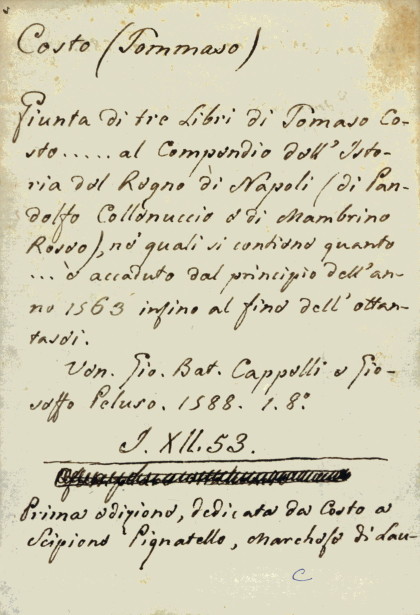 Costo (Tommaso)
Giunta di tre Libri di Tomaso Co-
sto ..... al Compendio dell' Isto-
ria del Regno di Napoli (di Pan-
dolfo Collenuccio e di Mambrino
Roseo), ne' quali si contiene quanto
... è accaduto dal principio dell' an-
no 1563 infino al fine dell' ottan-
tasei.
Ven. Gio. Bat. Cappelli e Gio-
seffo Peluso. 1588. 1. 8º
J. XII. 53.
Prima edizione, dedicata da Costo a
Scipione Pignatello, Marchese di Lau-
C